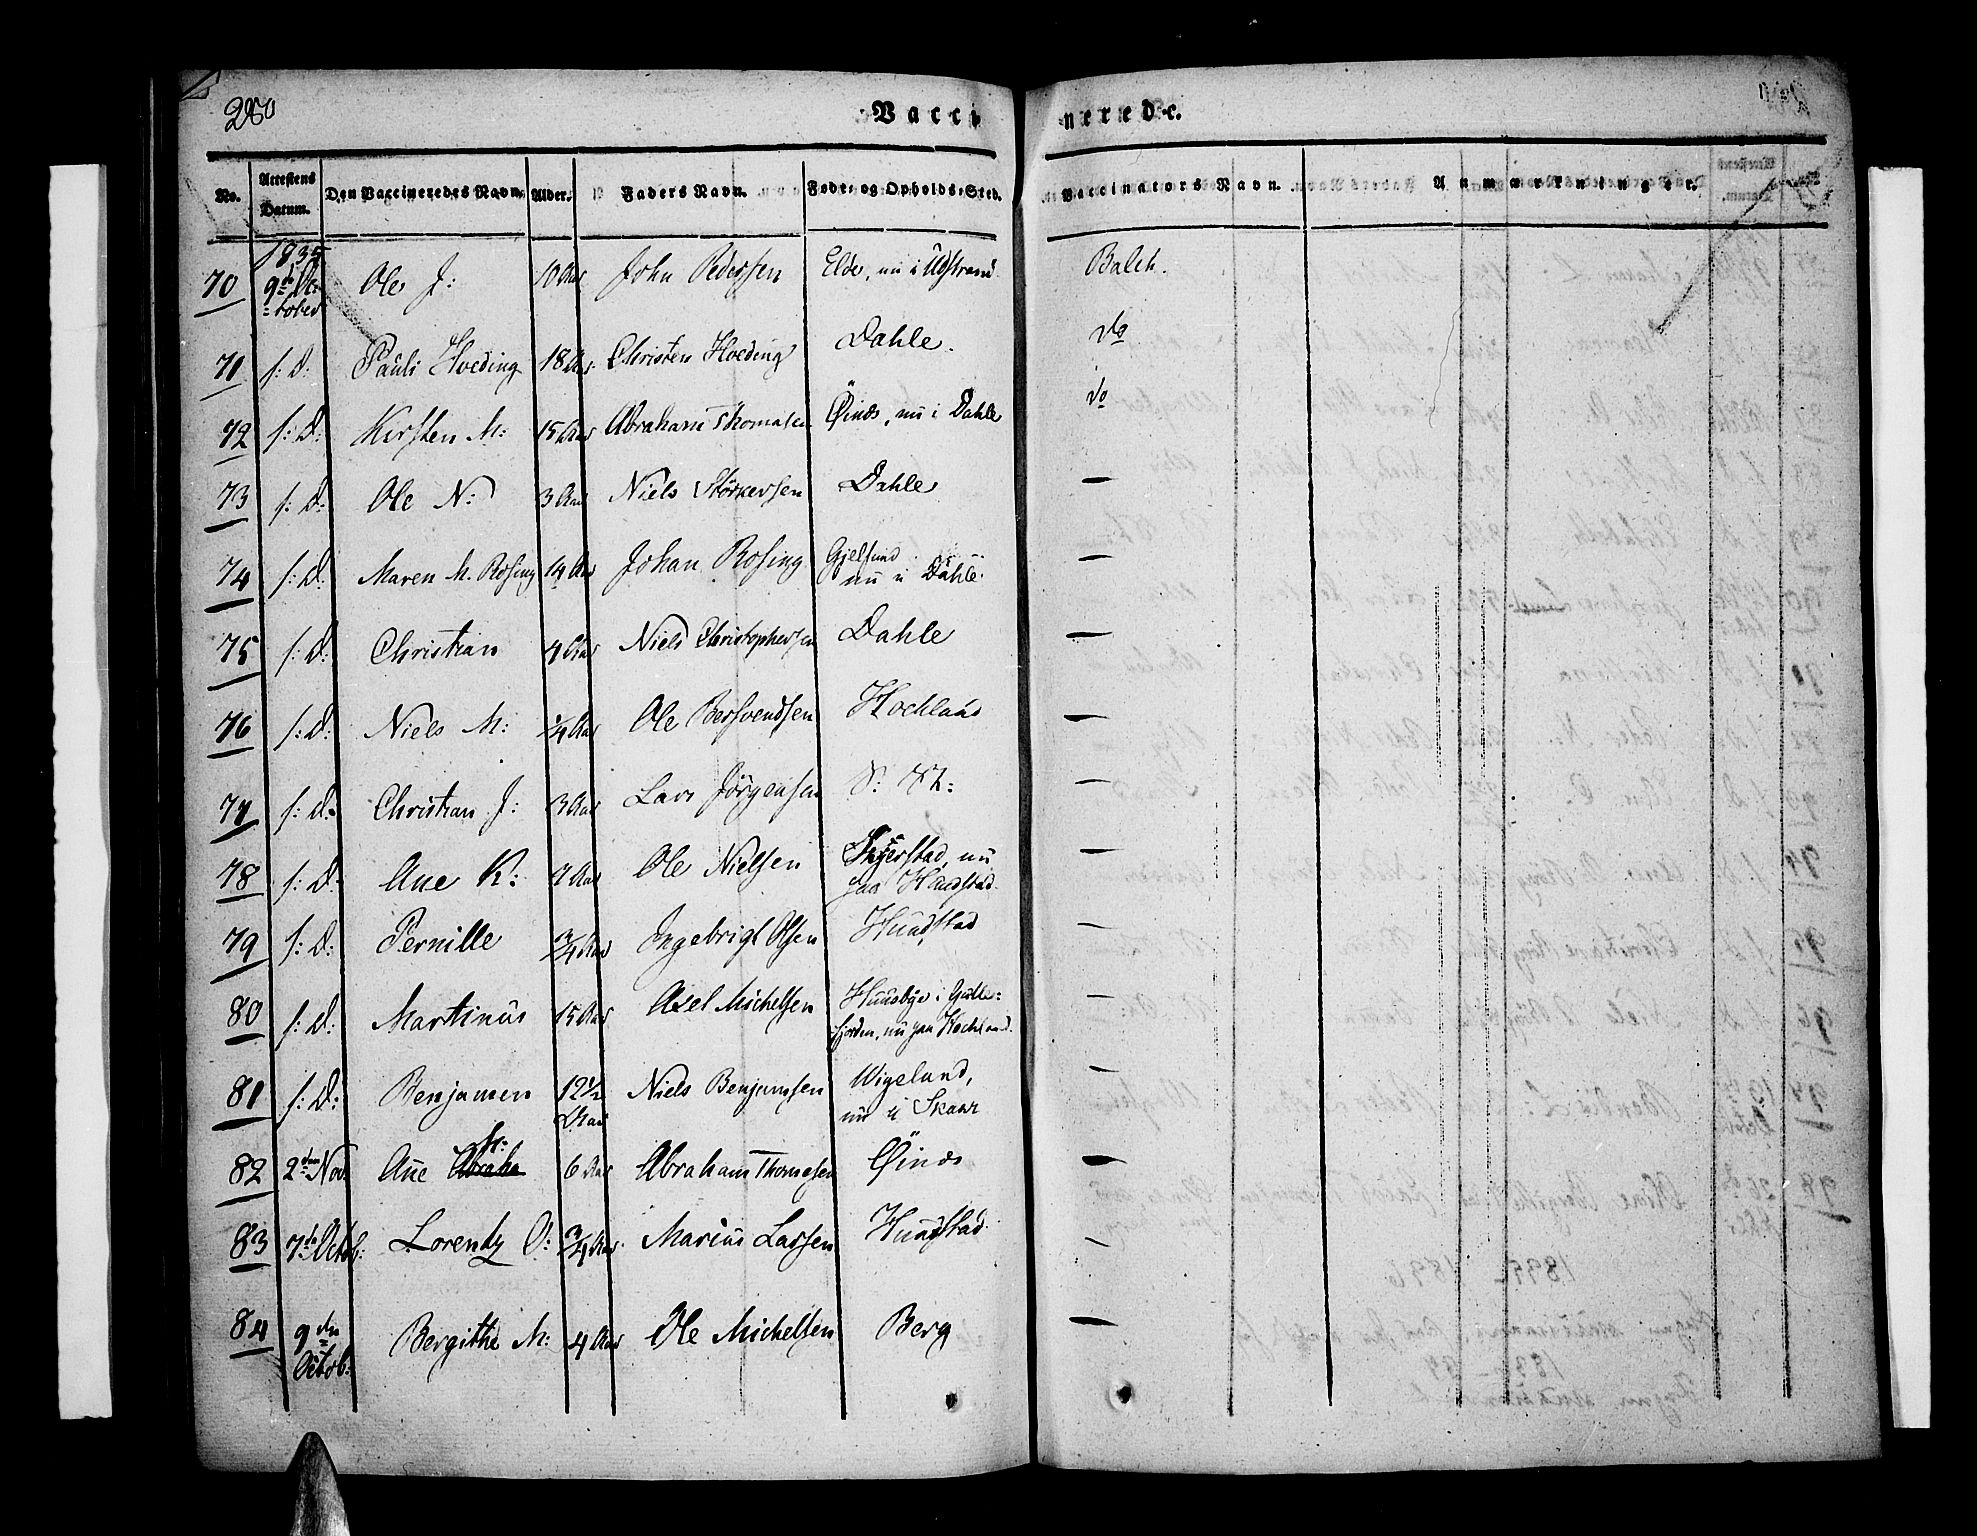 280 Vaccinerede.
No. Attestens Datum. Den Vaccineredes Navn. Alder. Faders Navn. Føde- og Opholds-Sted. Vaccinators Navn. Anmærkninger.
1835
70 9de October Ole J: 10 Aar John Pedersen Elde, nu i Udstrand Balch.
71 s: D: Pauli Hveding 18 Aar Christen Hveding Dahle. do
72 s: D: Kirsten M: 15 Aar Abraham Thomasen Øinæs, nu i Dahle do
73 s: D: Ole N: 3 Aar Niels Størkersen Dahle —
74 s: D: Maren M. Rosing 14 Aar Johan Rosing Gjelsund
nu i Dahle. —
75 s: D: Christian 4 Aar Niels Christophersen Dahle —
76 s: D: Niels M: 1/4 Aar Ole Bersvendsen Hochland —
77 s: d: Christian J: 3 Aar Lars Jörgensen S: St: —
78 s: D: Ane K: 4 Aar Ole Nielsen nu
paa Hundstad. —
79 s: D: Pernille 3/4 Aar Ingebrigt Olsen Hundstad —
80 s: D: Martinus 15 Aar Axel Michelsen Huusbye i
fjorden, nu paa Hochland. —
81 s: D: Benjamen 12 1/2 Aar Niels Benjamsen Wigeland,
nu i Skaar —
82 2den Nov: Ane Abraha M: 6 Aar Abraham Thomasen Øinæs —
83 7de Octob: Lorentz O: 3/4 Aar. Marius Larsen Hundstad. —
84 9den Octob: Bergithe M: 4 Aar Ole Michelsen Berg —